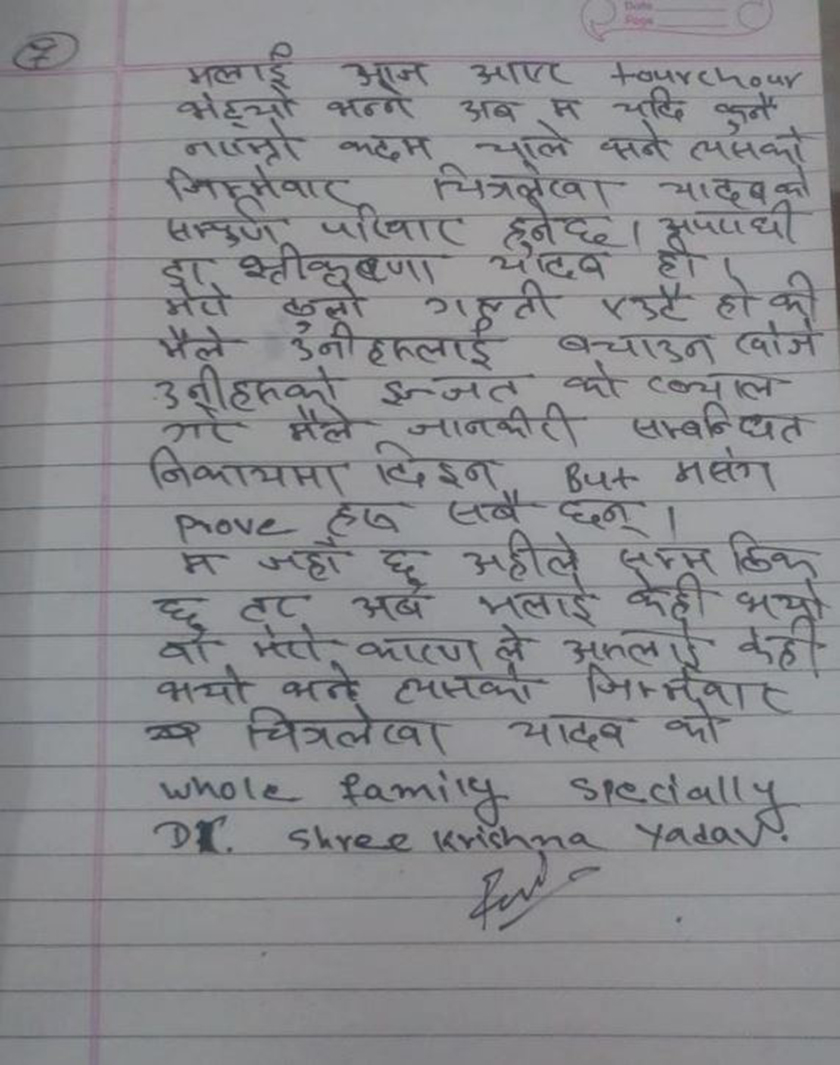 Date
Page
७
मलाई आज आएर tourchour
भेट्यो भन्ने अब म यदि कुनै
नाम्रो कदम चाले भने त्यसको
जिम्मेवार चित्रलेखा यादवको
सम्पुर्ण परिवार हुनेछ । अपराधी
डा श्रीकृष्णा यादव हो ।
मेरो ठुलो गल्ती एउटै हो की
मैले उनीहरुलाई बचाउन खोजे
उनीहरुको इज्जत को ख्याल
गरे मैले जानकारी सम्बन्धित
निकायमा दिइन But मसंग
prove हरु सबै छन् ।
म जहाँ छु अहीले सम्म ठिक
छु तर अब मलाई केही भयो
वा मेरो कारण ले अरुलाई केही
भयो भने त्यसको जिम्मेवार
चित्रलेखा यादव को
whole family specially
Dr. Shree Krishna Yadav.